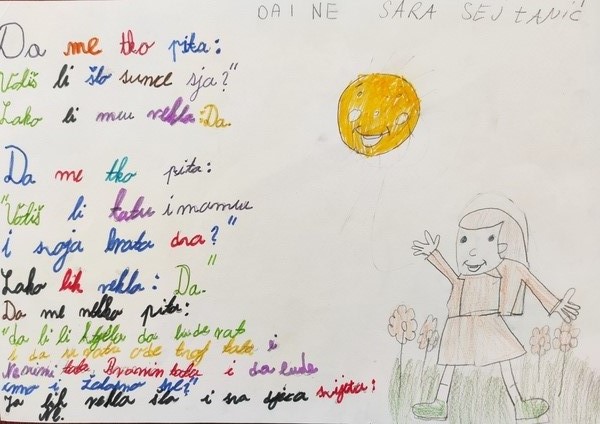 DA I NE SARA SEJTANIĆ
Da me tko pita:
Voliš li što sunce sja?"
Lako bi mu rekla: Da.
Da me tko pita:
"Voliš li tatu i mamu
i svoja brata dva?"
Lako bih rekla: Da."
Da me netko pita:
"da li bi htjela da bude rat
i da se tata
tata, i da bude
i
Ja bih rekla šta i sva djeca svijeta:
Ne.